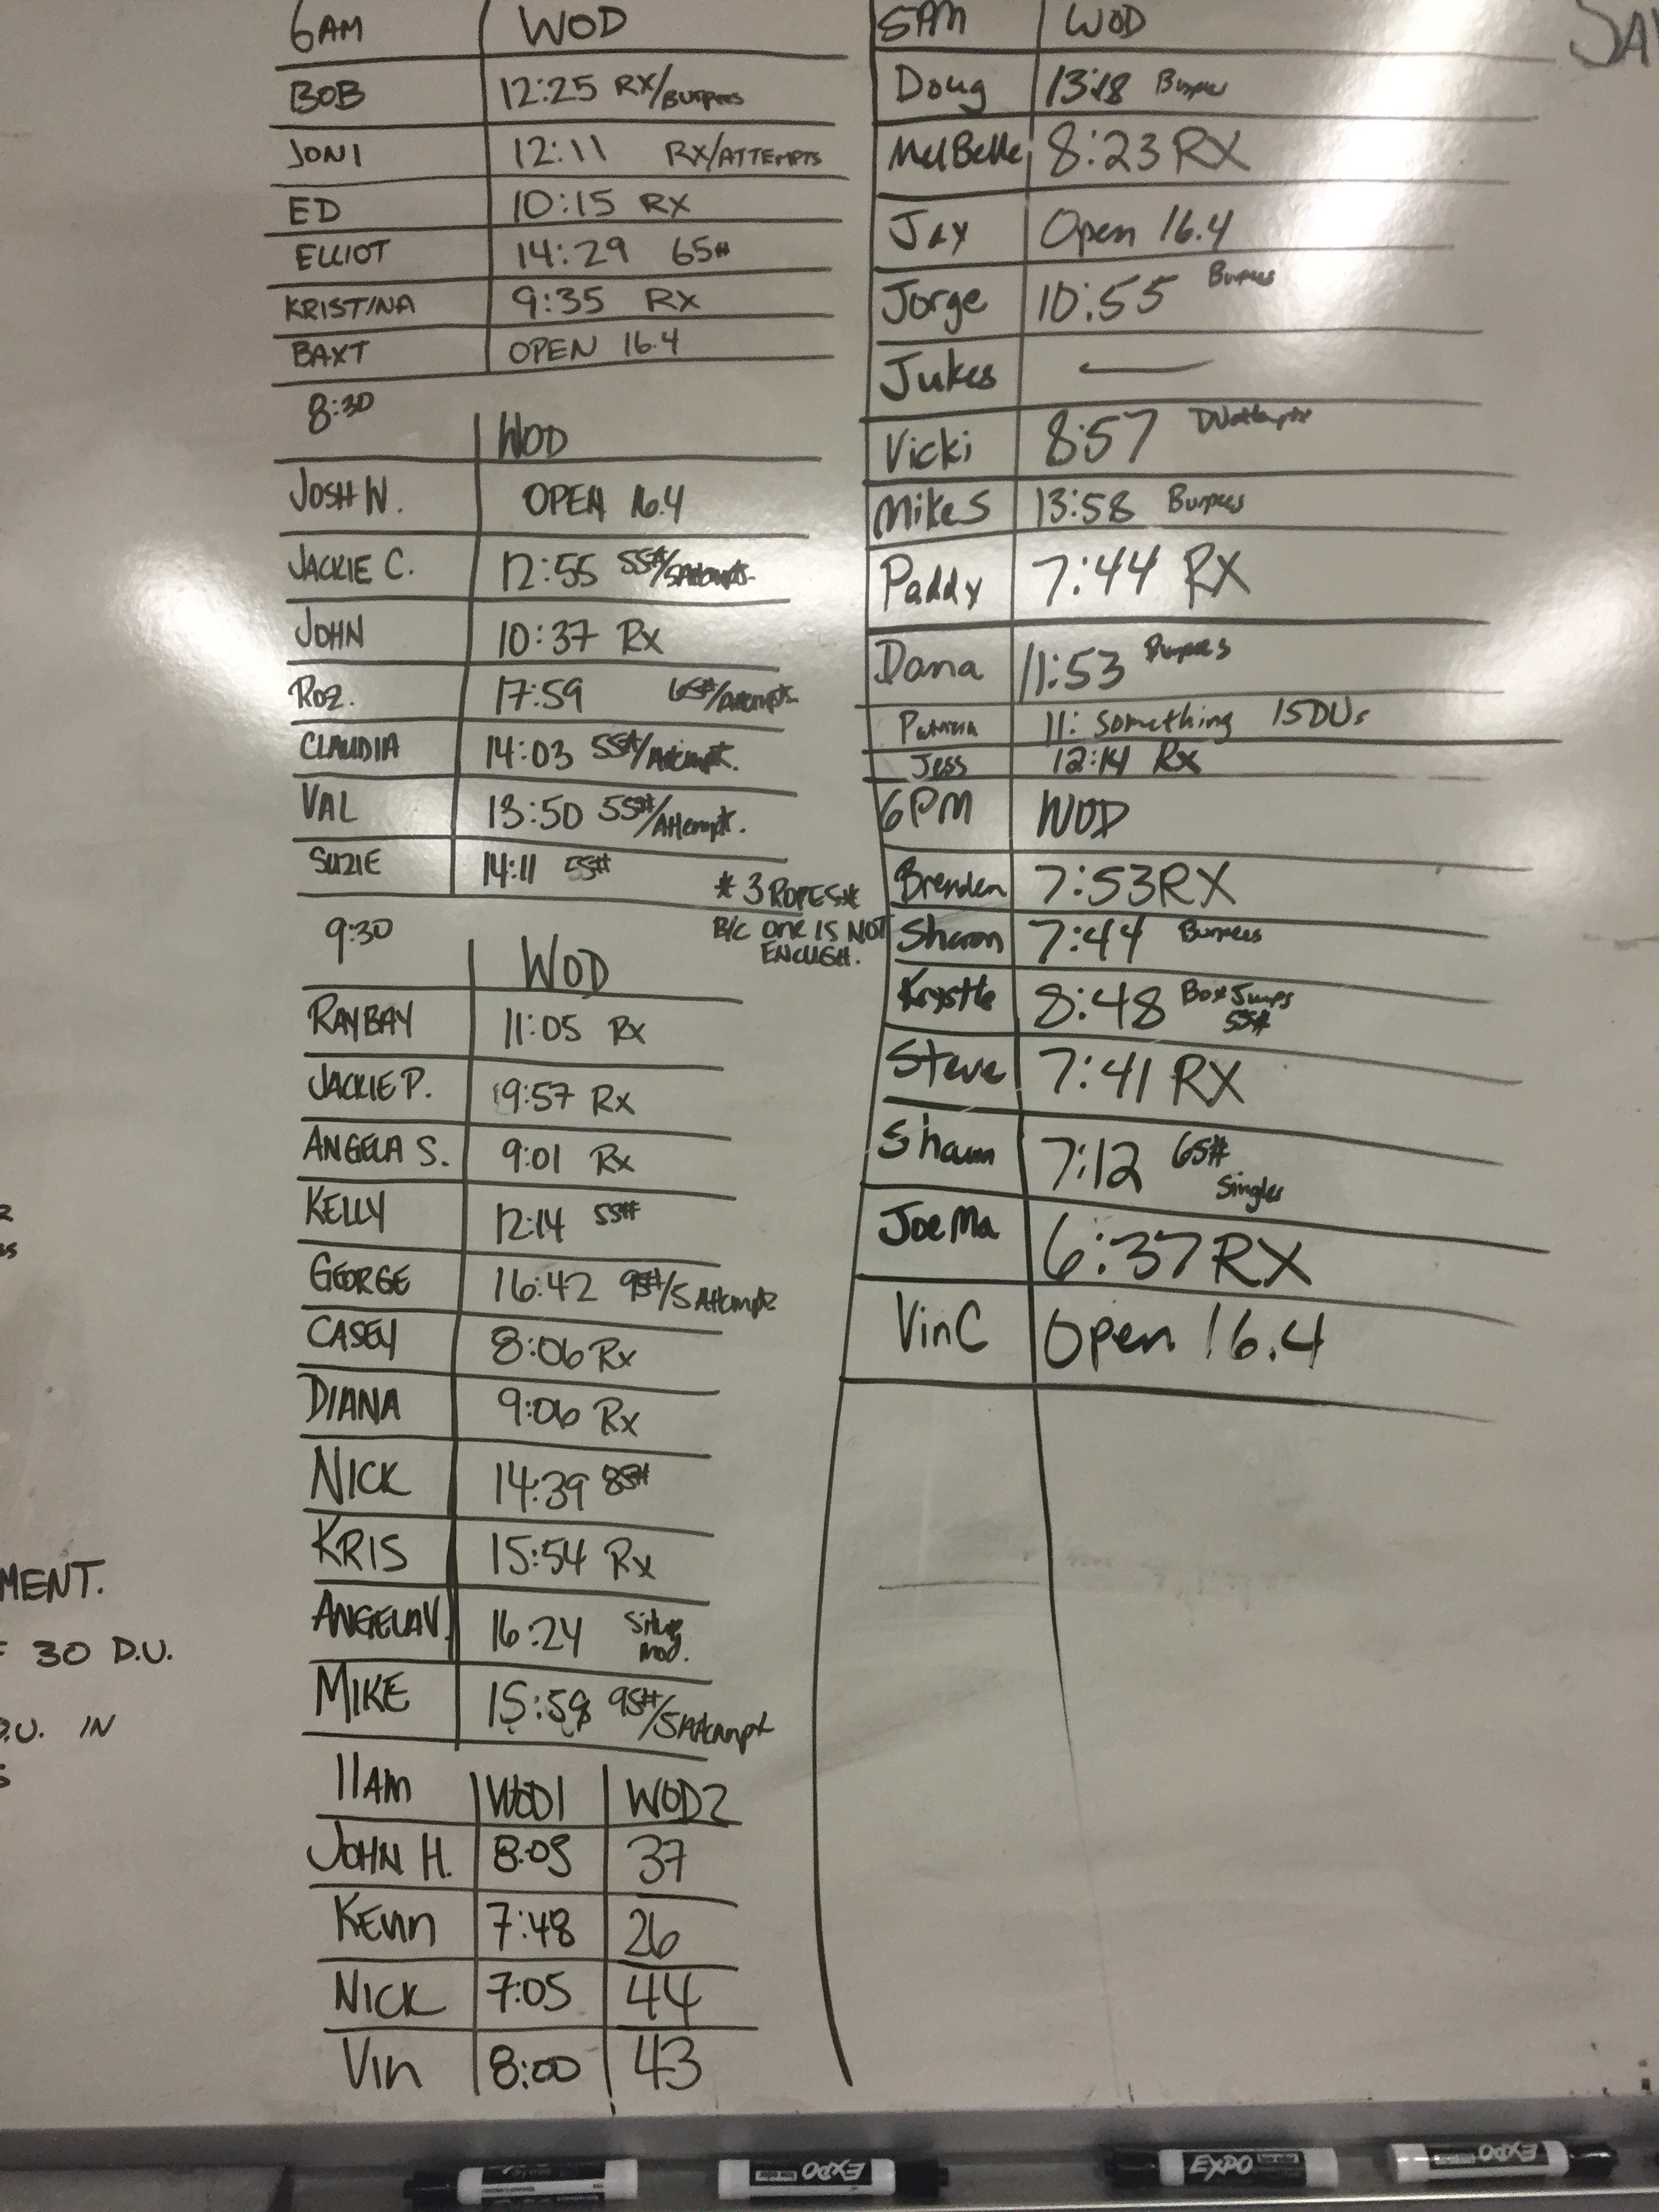 6AM WOD
BOB 12:25 RX/BURPEES
JONI 12:11 RX/ATTEMPTS
ED 10:15 RX
ELLIOT 14:29 65#
KRISTINA 9:35 RX
BAXT OPEN 16.4
8:30
WOD
JOSH W. OPEN 16.4
JACKIE C. 12:55 55#/5Attempts
JOHN 10:37 Rx
ROZ. 17:59 65#/Attempts
CLAUDIA 14:03 55#/Attempt.
VAL 13:50 55#/Attempt.
SUZIE 14:11 55#
*3 ROPES*
B/C one IS NOT
ENOUGH.
9:30
WOD
RAYBAY 11:05 Rx
JACKIE P. 9:57 Rx
ANGELA S. 9:01 Rx
KELLY 12:14 55#
GEORGE 16:42 95#/5 Attempts
CASEY 8:06 Rx
DIANA 9:06 Rx
NICK 14:39 85#
KRIS 15:54 Rx
ANGELA V. 16:24 Situp
mod.
MIKE 15:59 95#/5Attempt
11AM WOD1 WOD2
JOHN H. 8:05 37
KEVIN 7:48 26
NICK 7:05 44
VIN 8:00 43
5PM WOD
Doug 13:18 Burpees
MelBelle 8:23 RX
Jay Open 16.4
Jorge 10:55 Burpees
Jukes —
Vicki 8:57 DU attempts
Mike S 13:58 Burpees
Paddy 7:44 RX
Dana 11:53 Burpees
11: Something 15DUs
Jess 12:14 Rx
6PM WOD
Brenden 7:53 RX
Sharon 7:44 Burpees
Krystle 8:48 Box Jumps
55#
Steve 7:41 RX
Shaun 7:12 65#
Singles
Joe Ma 6:37 RX
Vin C Open 16.4
MENT.
30 D.U.
D.U. IN
EXPO
EXPO
EXPO